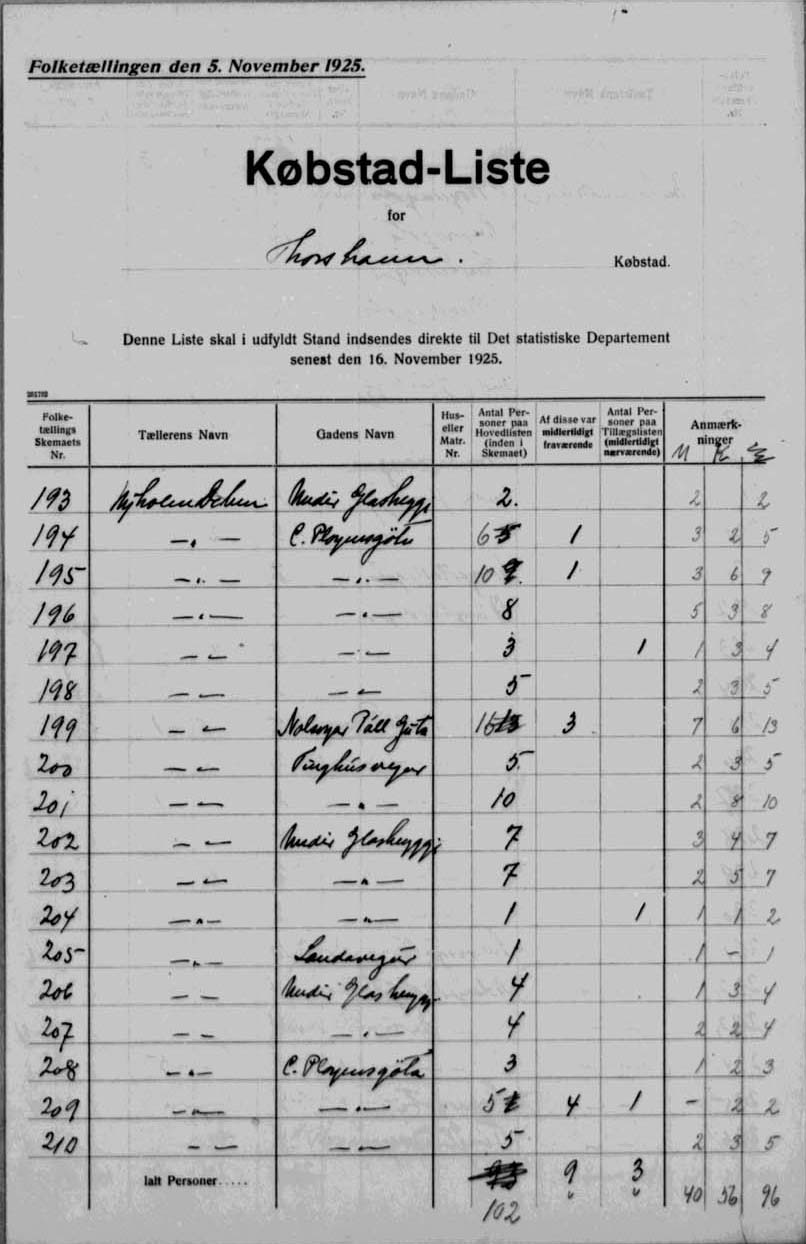 Folketællingen den 5. November 1925.
Købstad-Liste
for
Thorshavn. Købstad.
Denne Liste skal i udfyldt Stand indsendes direkte til Det statistiske Departement
senest den 16. November 1925.
Folke-
tællings
Skemaets
Nr.
Tællerens Navn
Gadens Navn
Hus-
eller
Matr.
Nr.
Antal Per-
soner paa
Hovedlisten
(inden i
Skemaet)
Af disse var
midlertidigt
fraværende
Antal Per-
soner paa
Tillægslisten
(midlertidigt
nærværende)
Anmærk-
ninger
M K
193 Undir Glasheyggi 2. 2 2
194 — „ — C. Ployensgöta 6 1 3 2 5
195 — „ — — „ — 10 1 3 6 9
196 — „ — — „ — 8 5 3 8
197 — „ — — „ — 3 1 1 3 4
198 — „ — — „ — 5 2 3 5
199 — „ — Nolsoyar Páll Gøta 16 3 7 6 13
200 — „ — Tinghúsvegur 5 2 3 5
201 — „ — — „ — 10 2 8 10
202 — „ — Undir Glasheyggi 7 3 4 7
203 — „ — — „ — 7 2 5 7
204 — „ — — „ — 1 1 1 1 2
205 — „ — Landavegur 1 1 - 1
206 — — Undir Glasheygg 4 1 3 4
207 — — — „ — 4 2 2 4
208 — „ — C. Ployensgöta 3 1 2 3
209 — „ — — „ — 5 4 1 - 2 2
210 — — — „ — 5 2 3 5
Ialt Personer..... 93 9 3 40 56 96
102